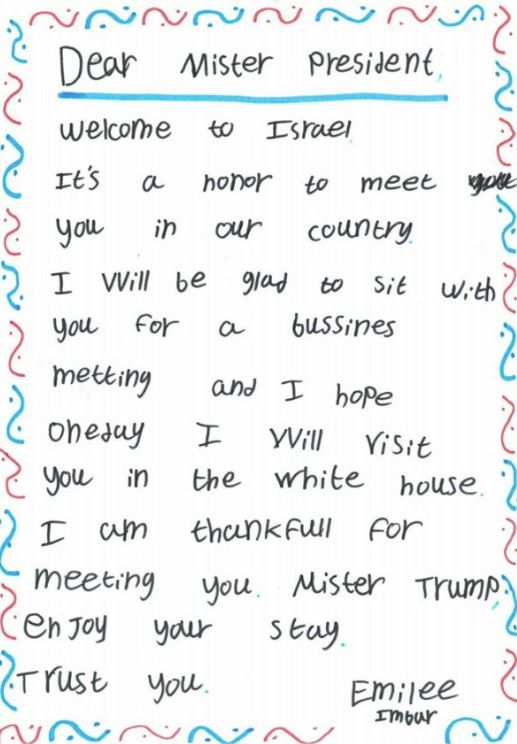 Dear Mister President,
welcome to Israel
It's a honor to meet
you in our country.
I will be glad to sit with
you for a bussines
metting and I hope
oneday I will visit
you in the white house.
I am thankfull for
meeting you. Mister Trump,
enjoy your stay.
Trust you.
Emilee
Imbur